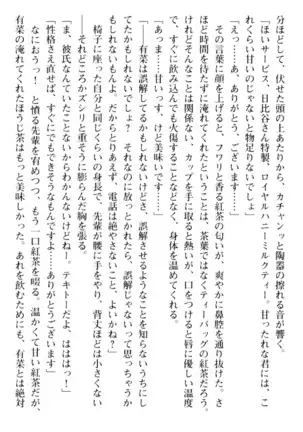 分ほどして、伏せた頭のあたりから、カチャンッと陶器の擦れる音が響く。
「ほいサービス、日比谷さん特製、ロイヤルハニーミルクティー。甘ったれな君には、こ
れくらい甘いのじゃないと物足りないでしょ」
「えっ……あ、ありがとう、ございます……」
その言葉に顔を上げると、フワリと香る紅茶の匂いが、爽やかに鼻腔を通り抜けた。さ
ほど時間を待たずに淹れてくれたということは、茶葉ではなくティーバッグの紅茶だろう。
けれどそんなことは関係ない、カップを手に取ると熱いが、口をつけると唇に優しい温度
で、すぐに飲み込んでも火傷することなどなく、身体を温めてくれる。
「あっま……甘いっす、けど美味いです……」
「有菜は誤解してるかもしれないけど、誤解させるようなことしてるって、君もわかっ
てたかもしれないでしょ？　それなのに放っとかれたら、誤解じゃないって思っちゃうか
もしれないもんよ。だからとりあえず、電話は絶やさないこと、よいかね？」
椅子に座った自分と同じくらいの身長で、先輩が腰に手をやり、背丈ほどは小さくない
――それどころかズシリと重そうに膨らんだ胸を張る。
「ま、彼氏なんていたことないから、わかんないけどねー。テキトーだよ、ははは っ！」
「性格さえ直せば、すぐにでもできそうなんすけどねぇ……ありがとうございます」
なにおう！　と憤る先輩を宥めつつ、もう一口紅茶を啜る。温かくて甘い紅茶だが、
有菜の淹れてくれたほうじ茶はもっと美味しかった。あれを飲むためにも、有菜とは絶対